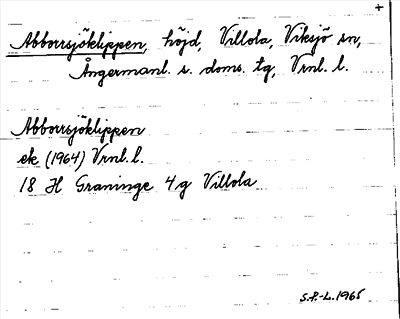 +
Abborrsjöklippen, höjd, Villola, Viksjö sn,
Ångermanl. s. doms. tg, Vrnl. l.
Abborrsjöklippen
ek (1964) Vrnl. l.
18 H Graninge 4 g Villola
S.P.-L. 1965